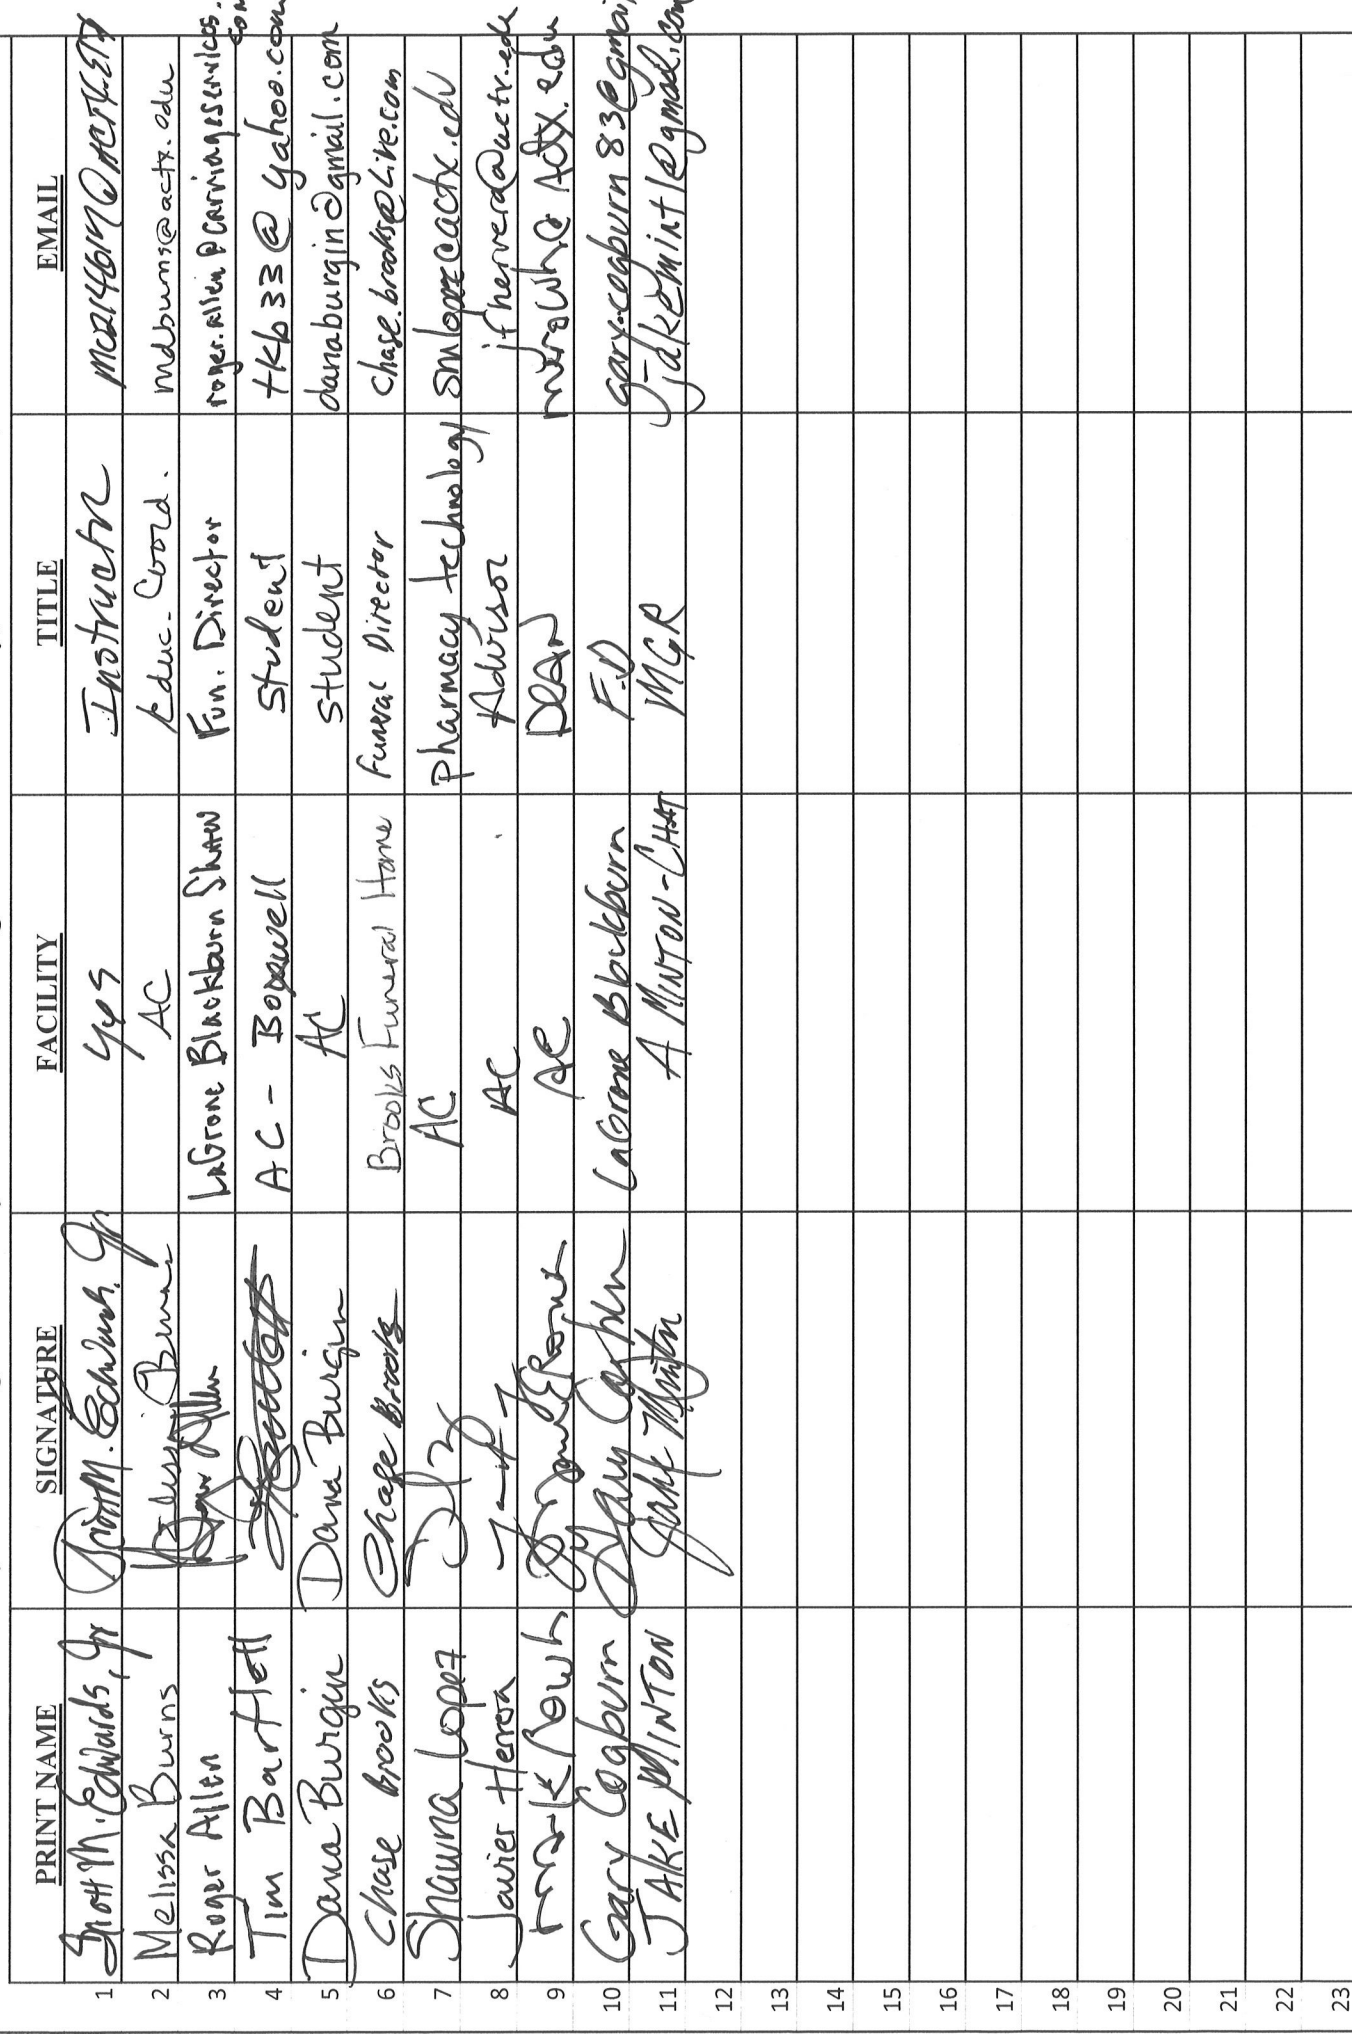 PRINT NAME SIGNATURE FACILITY TITLE EMAIL
1 Scott M. Edwards, Jr Scott M. Edwards, Jr. Instructor
2 Melissa Burns Melissa Burns AC Educ. Coord. mdburns@actx.edu
3 Roger Allen Roger Allen LaGrone Blackburn Shaw Fun. Director roger.allen@carriageservices.com
4 Tim Bartlett AC - Boxwell Student tkb33@yahoo.com
5 Dana Burgin Dana Burgin AC Student danaburgin@gmail.com
6 Chase Brooks Chase Brooks Brooks Funeral Home Funeral Director chase.brooks@live.com
7 Shawna Lopez AC Pharmacy technology
8 Javier Herrera AC Advisor
9 Mark Rowh AC DEAN
10 Gary Cogburn Gary Cogburn LaGrone Blackburn F.D gary.cogburn83@gmail
11 JAKE MINTON Jake Minton A MINTON-CHAT MGR jakemint1@gmail.com
12
13
14
15
16
17
18
19
20
21
22
23